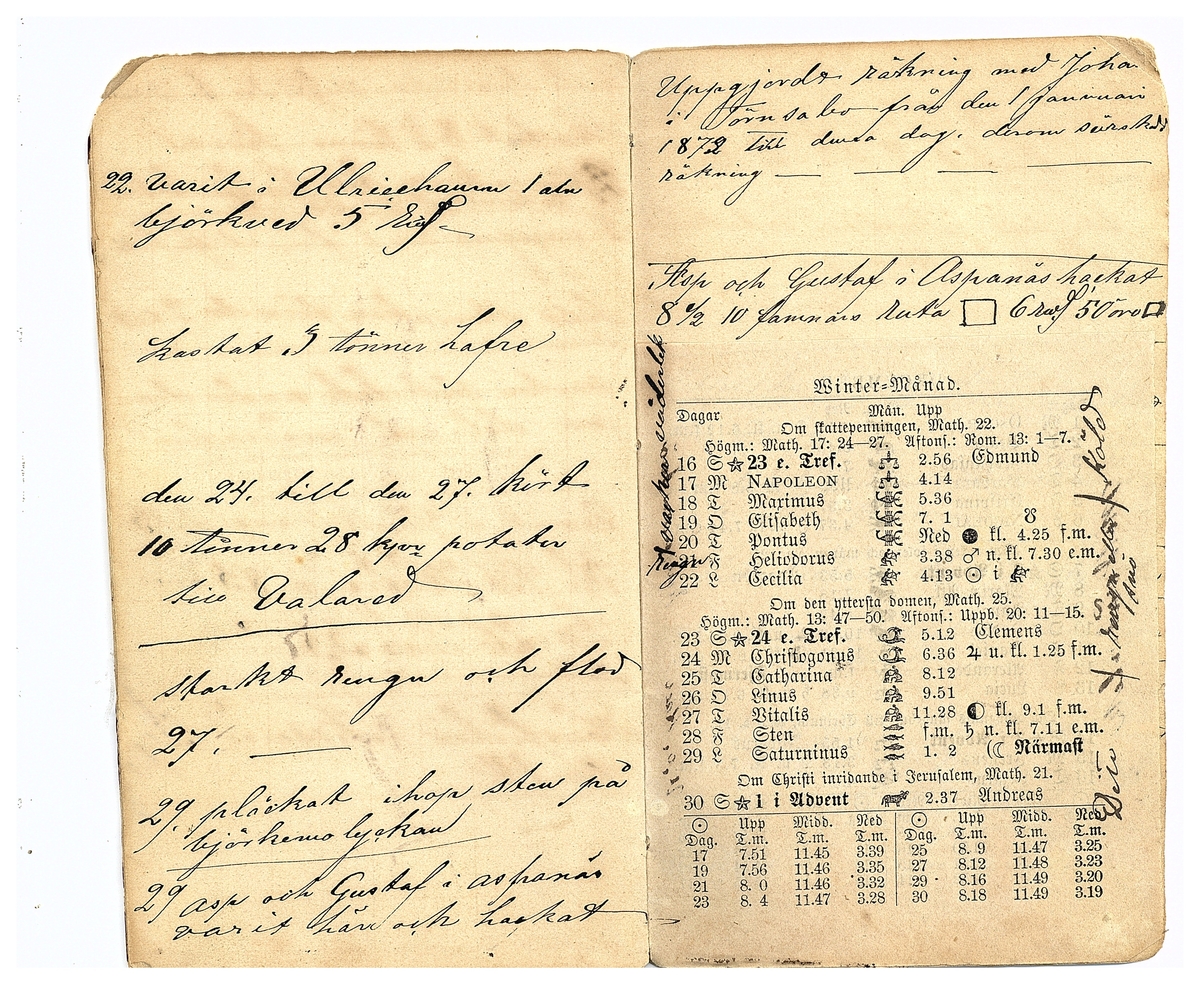 22. varit i Ulricehamn 1 aln
björkved 5 Rd
kastat 3 tönner hafre
den 24. till den 27. kört
10 tönner 28 kpr potater
till Valared
starkt rengn och flod
27. —
29. pläckat ihop sten på
björkemo lyckan
29 asp och Gustaf i aspanäs
varit här och hackat
Uppgjordt räkning med Joha
i Törnsabo från den 1 januari
1872 till denna dag. derom särskild
räkning — — — —
Asp och Gustaf i Aspanäs hackat
8 1/2 10 famnars ruta □ 6 Rd 50 öre □
Winter=Månad.
Dagar Mån. Upp
Om skattepenningen, Math. 22.
Högm.: Math. 17: 24—27. Aftons.: Rom. 13: 1—7.
16 S ☆ 23 e. Tref. ♎ 2.56 Edmund
17 M NAPOLEON ♎ 4.14
18 T Maximus 5.36
19 O Elisabeth 7. 1 ☋
20 T Pontus Ned ● kl. 4.25 f.m.
21 F Heliodorus 3.38 ♂ n. kl. 7.30 e.m.
22 L Cecilia 4.13 ☉ i ♐
Om den yttersta domen, Math. 25.
Högm.: Math. 13: 47—50. Aftons.: Uppb. 20: 11—15.
23 S ☆ 24 e. Tref. 5.12 Clemens
24 M Christogonus 6.36 ♃ u. kl. 1.25 f.m.
25 T Catharina 8.12
26 O Linus 9.51
27 T Vitalis 11.28 ◐ kl. 9.1 f.m.
28 F Sten f.m. ♄ n. kl. 7.11 e.m.
29 L Saturninus 1. 2 (☾ Närmast
Om Christi inridande i Jerusalem, Math. 21.
30 S ☆ 1 i Advent 2.37 Andreas
☉ Upp Midd. Ned ☉ Upp Midd. Ned
Dag. T.m. T.m. T.m. Dag. T.m. T.m. T.m.
17 7.51 11.45 3.39 25 8. 9 11.47 3.25
19 7.56 11.46 3.35 27 8.12 11.48 3.23
21 8. 0 11.46 3.32 29 8.16 11.49 3.20
23 8. 4 11.47 3.28 30 8.18 11.49 3.19
väderlek
Rengn
köld